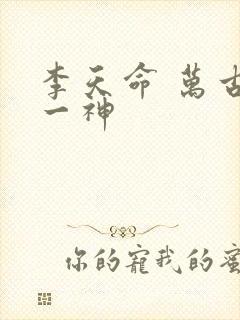 李天命 萬古
一神
你的寵我的蜜